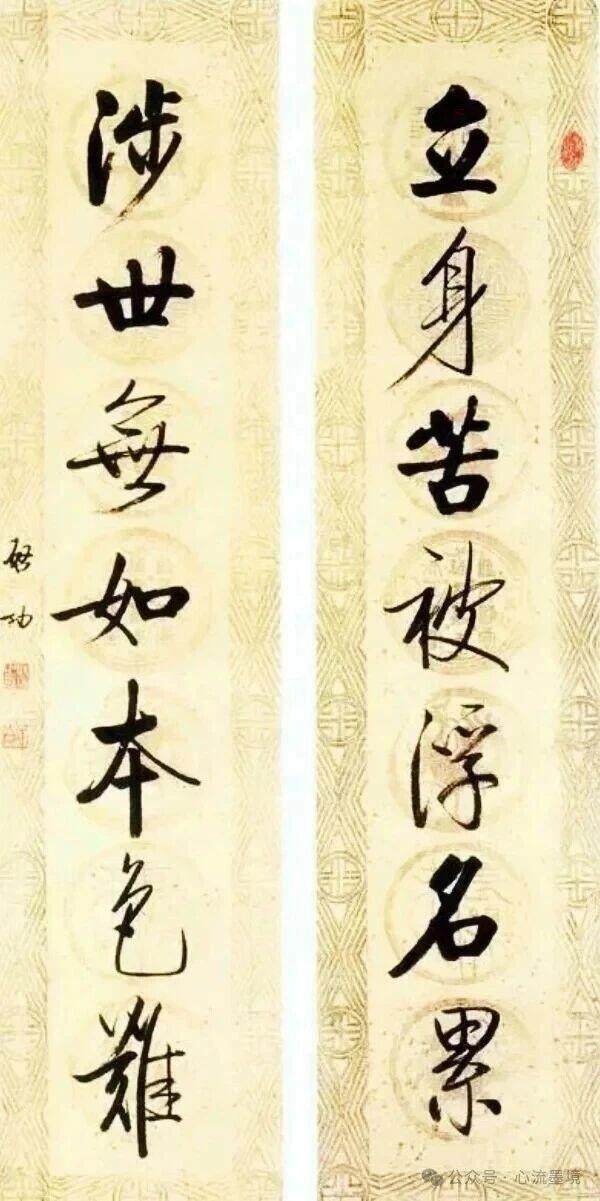 立身苦被浮名累
涉世無如本色難
啓功
公众号·心流墨境